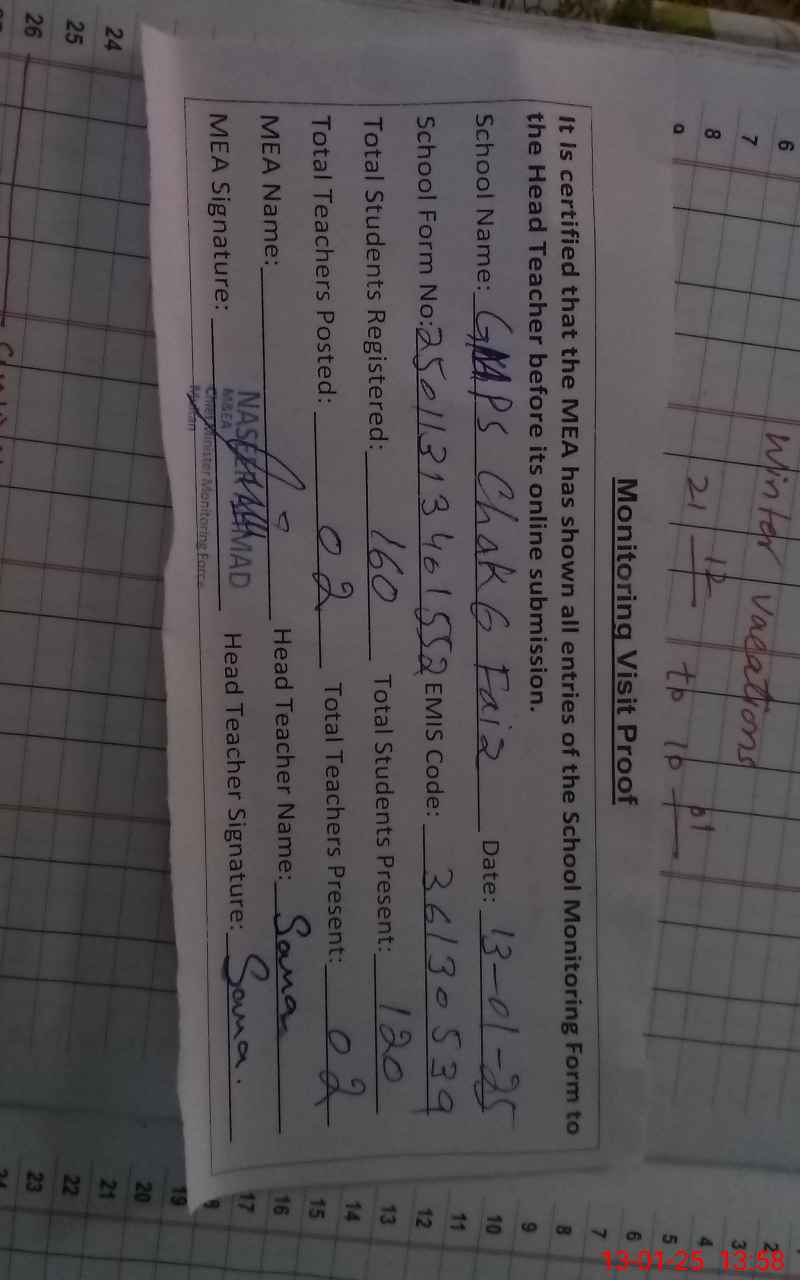 Winter vacations
21/12 to 10/01
Monitoring Visit Proof
It is certified that the MEA has shown all entries of the School Monitoring Form to
the Head Teacher before its online submission.
School Name: GMMPS Chak 6 Faiz Date: 13-01-25
School Form No: 25011313401552 EMIS Code: 36130539
Total Students Registered: 160 Total Students Present: 120
Total Teachers Posted: 02 Total Teachers Present: 02
MEA Name: Head Teacher Name: Sana
NASEER AHMAD
M&EA
Chief Minister Monitoring Force
Multan
MEA Signature: Head Teacher Signature: Sana.
6
7
8
24
25
26
2
3
4
5
6
7
8
9
10
11
12
13
14
15
16
17
19
20
21
22
23
13-01-25 13:58